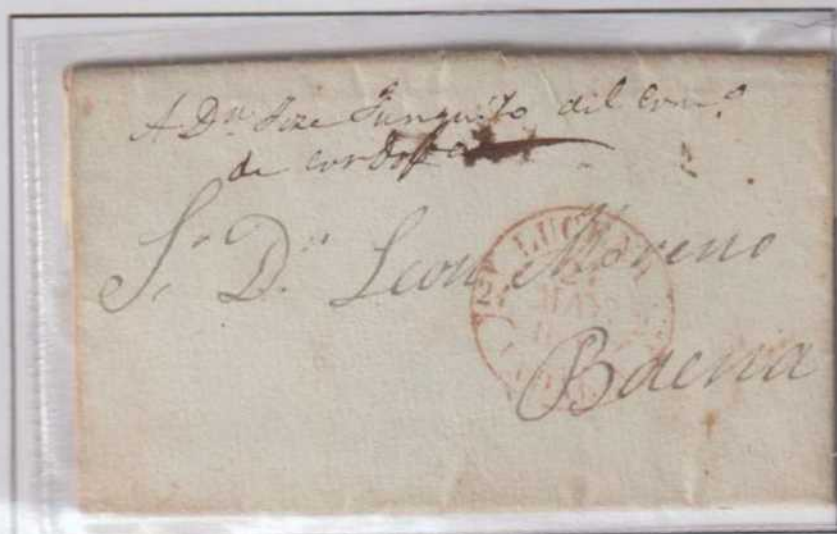 A Dn Jose Junquito del Com.o
de cordoba
Sr. Dn. Leon Moreno
LUCENA
MAY
Baena